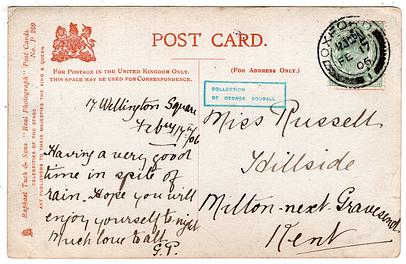 POST CARD.
FOR POSTAGE IN THE UNITED KINGDOM ONLY.
THIS SPACE MAY BE USED FOR CORRESPONDENCE.
(FOR ADDRESS ONLY.)
Raphael Tuck & Sons' "Real Photograph" Post Cards. No. P 929
CELEBRITIES OF THE STAGE
ART PUBLISHERS TO THEIR MAJESTIES THE KING & QUEEN.
COLLECTION
OF GEORGE DOUBALL
OXFORD
FE 17
06
17 Wellington Square
Feb 17th/06
Having a very good
time in spite of
rain. Hope you will
enjoy yourself to night
Much love to all.
G.P.
Miss Russell
Hillside
Milton-next-Gravesend
Kent